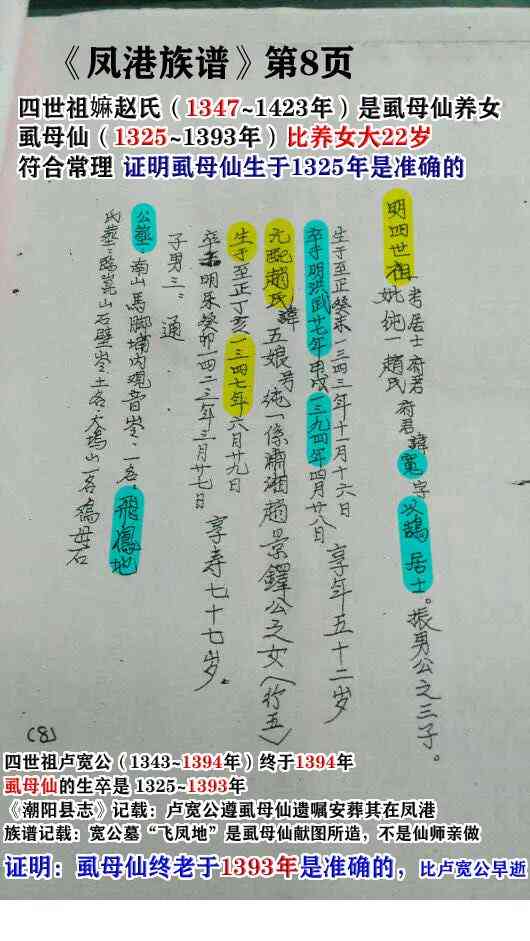 《凤港族谱》第8页
四世祖嫲赵氏（1347~1423年）是虱母仙养女
虱母仙（1325~1393年）比养女大22岁
符合常理 证明虱母仙生于1325年是准确的
明四世祖
考居士府君諱寬字
鶴居士。振男公之三子。
妣纯一趙氏
生于至正癸未一三四三年十一月十六日
卒于明洪武廿七年甲戌一三九四年四月廿八日
享年五十二岁
元配趙氏諱五娘号纯一係瀟湘趙景鐸公之女(行五)
生于至正丁亥一三四七年六月廿九日
卒于明永癸卯一四二三年三月廿七日
享寿七十七岁。
子男三：通
公墓：南山馬脚埔内观音岽、一名飛鳳地
氏墓：臨崑山石壁岽土名大塢山一名矯母石
(8)
四世祖卢宽公（1343~1394年）终于1394年
虱母仙的生卒是 1325~1393年
《潮阳县志》记载：卢宽公遵虱母仙遗嘱安葬其在凤港
族谱记载：宽公墓“飞凤地”是虱母仙献图所造，不是仙师亲做
证明：虱母仙终老于1393年是准确的，比卢宽公早逝